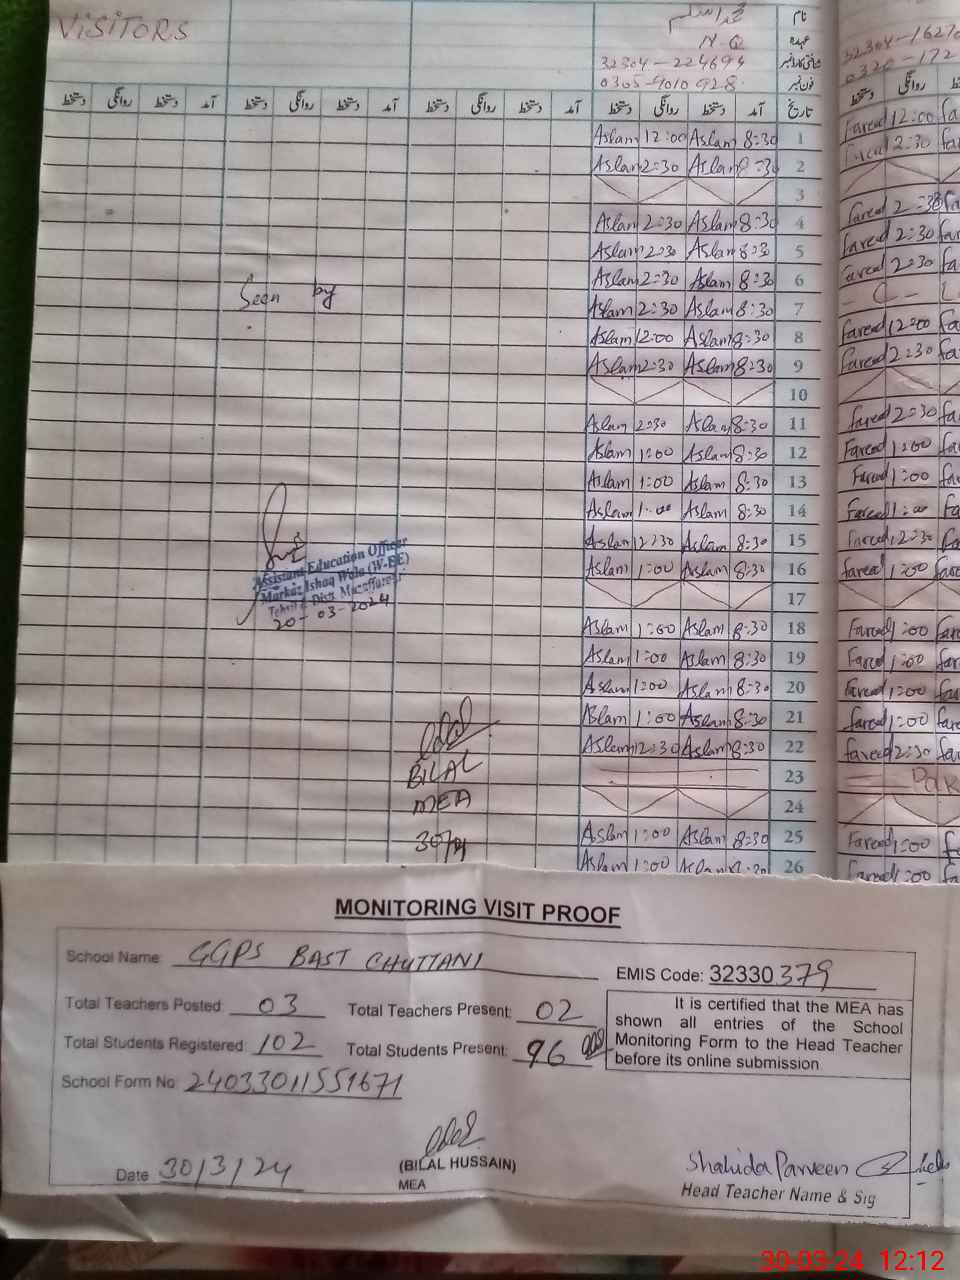 VISITORS
محمد اسلم
نام
N.Q
عہدہ
32304-224694
شناختی کارڈ نمبر
32304-1627
0305-9010928
فون نمبر
0320-172
دستخط روانگی دستخط آمد دستخط روانگی دستخط آمد دستخط روانگی دستخط آمد دستخط روانگی دستخط آمد تاریخ دستخط روانگی
Aslam 12:00 Aslam 8:30 1 Fareed 12:00
Aslam 2:30 Aslam 8:30 2 2:30
3
Aslam 2:30 Aslam 8:30 4 Fareed 2:30
Aslam 2:30 Aslam 8:30 5 Fareed 2:30
Aslam 2:30 Aslam 8:30 6 Fareed 2:30
Seen by
Aslam 2:30 Aslam 8:30 7 - C - L
Aslam 12:00 Aslam 8:30 8 Fareed 12:00
Aslam 2:30 Aslam 8:30 9 Fareed 2:30
10
Aslam 2:30 Aslam 8:30 11 Fareed 2:30
Aslam 1:00 Aslam 8:30 12 Fareed 1:00
Aslam 1:00 Aslam 8:30 13 Fareed 1:00
Aslam 1:00 Aslam 8:30 14 Fareed 1:00
Aslam 12:30 Aslam 8:30 15 Fareed 12:30
Aslam 1:00 Aslam 8:30 16 Fareed 1:00
17
Assistant Education Officer
Markaz Ishaq Wala (W-EE)
Tehsil & Distt. Muzaffargarh
20-03-2024
Aslam 1:00 Aslam 8:30 18 Fareed 1:00
Aslam 1:00 Aslam 8:30 19 Fareed 1:00
Aslam 1:00 Aslam 8:30 20 Fareed 1:00
Aslam 1:00 Aslam 8:30 21 Fareed 1:00
Aslam 12:30 Aslam 8:30 22 Fareed 2:30
BILAL
23 Pak
MEA
24
Aslam 1:00 Aslam 8:30 25 Fareed 1:00
Aslam 1:00 Aslam 26 Fareed 1:00
MONITORING VISIT PROOF
School Name: GGPS BAST CHUTTANI
EMIS Code: 32330379
Total Teachers Posted: 03 Total Teachers Present: 02
Total Students Registered: 102 Total Students Present: 96
It is certified that the MEA has
shown all entries of the School
Monitoring Form to the Head Teacher
before its online submission
School Form No: 24033011551671
Date 30/3/24
(BILAL HUSSAIN)
MEA
Shahida Parveen
Head Teacher Name & Sig
30-03-24 12:12